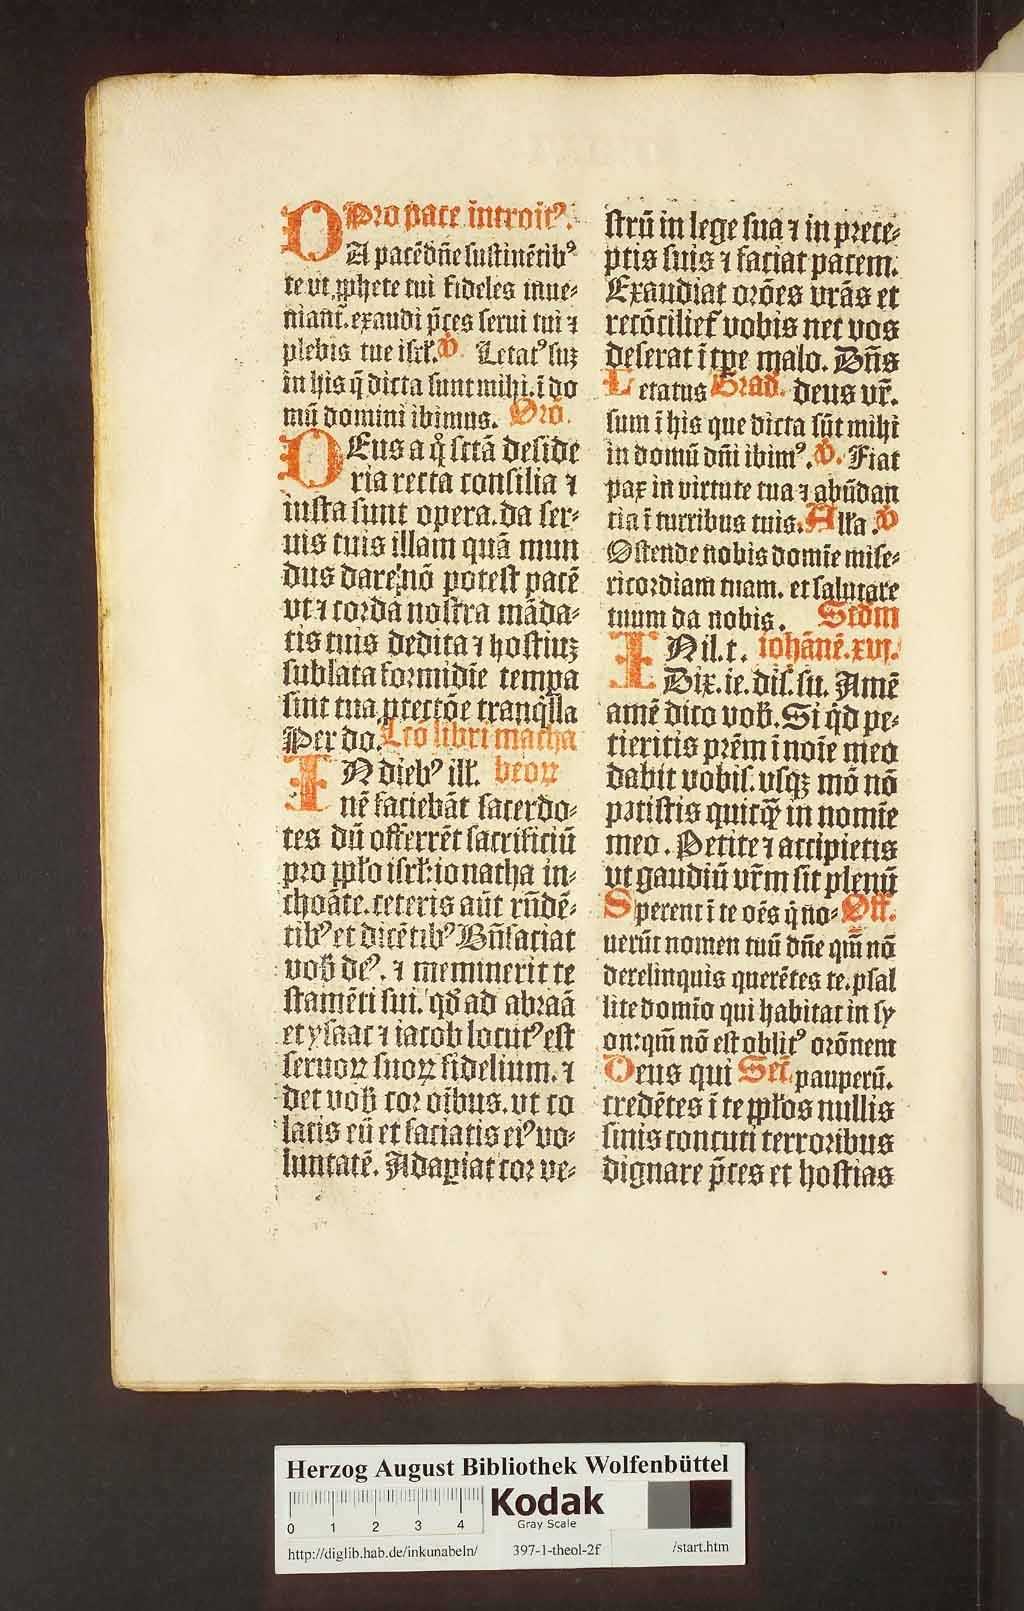 Pro pace introitꝰ.
DA pacē dn̄e sustinētibꝰ
te vt ꝓphete tui fideles inue⸗
niant̄. exaudi p̄ces serui tui ⁊
plebis tue isrl̄. V̄. Letatꝰ suꝫ
in his q̄ dicta sunt mihi. ī do
mū domini ibimus. Orō.
DEus a qͦ sctā deside
ria recta consilia ⁊
iusta sunt opera. da ser⸗
uis tuis illam quā mun
dus dare nō potest pacē
vt ⁊ corda nostra māda⸗
tis tuis dedita ⁊ hostiuꝫ
sublata formidīe tempa
sint tua ꝓtectōe tranqͥlla
Per do. Lcō libri macha
IN diebꝰ ill̄. beoꝝ
nē faciebāt sacerdo⸗
tes dū offerrēt sacrificiū
pro ppl̄o isrl̄: ionatha in⸗
choāte. ceteris aūt rn̄dē⸗
tibꝰ et dicētibꝰ Bn̄faciat
vob̄ deꝰ. ⁊ meminerit te
stamēti sui. qd̄ ad abraā
et ysaac ⁊ iacob locutꝰ est
seruoꝝ suoꝝ fidelium. ⁊
det vob̄ cor oībus. vt co
latis eū et faciatis eiꝰ vo⸗
luntatē. Adaꝑiat cor ve⸗
strū in lege sua ⁊ in prece⸗
ptis suis ⁊ faciat pacem.
Exaudiat orōes vrās et
recōcilief vobis nec vos
deserat ī tꝑe malo. Dn̄s
Letatus Grad̄. deus vr̄.
sum ī his que dicta sūt mihi
in domū dn̄i ibimꝰ. V̄. Fiat
pax in virtute tua ⁊ abūdan
tia ī turribus tuis. All̄a. V̄
Ostende nobis domīe mise⸗
ricordiam tuam. et salutare
tuum da nobis. Scdm
IN il. t. iohānē. xvj.
Dix. ie. dis̄. su. Amē
amē dico vob̄. Si qͥd pe⸗
tieritis prēm ī noīe meo
dabit vobis. vsqꝫ mō nō
petistis quicqͣ̄ in nomīe
meo. Petite ⁊ accipietis
vt gaudiū vrm̄ sit plenū
Sperent ī te oēs q̄ no⸗ Off.
uerūt nomen tuū dn̄e qm̄ nō
derelinquis querētes te. psal
lite domīo qui habitat in sy
on: qm̄ nō est oblitꝰ orōnem
Deus qui Sec̄. pauperū.
credētes ī te ppl̄os nullis
sinis concuti terroribus
dignare p̄ces et hostias
Herzog August Bibliothek Wolfenbüttel
0 1 2 3 4
Kodak
Gray Scale
http://diglib.hab.de/inkunabeln/ 397-1-theol-2f /start.htm